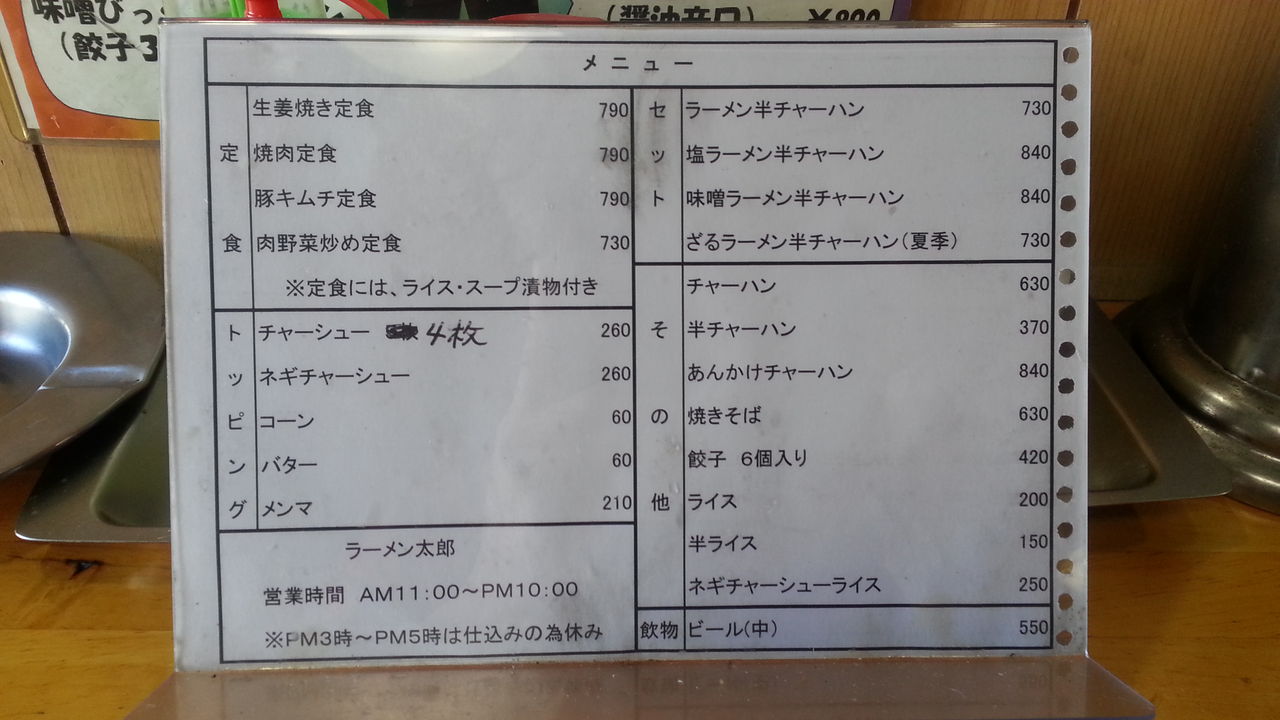 味噌びっ
(餃子3
(醤油辛口) ¥800
メニュー
定食
生姜焼き定食 790
焼肉定食 790
豚キムチ定食 790
肉野菜炒め定食 730
※定食には、ライス・スープ漬物付き
トッピング
チャーシュー 4枚 260
ネギチャーシュー 260
コーン 60
バター 60
メンマ 210
ラーメン太郎
営業時間 AM11:00～PM10:00
※PM3時～PM5時は仕込みの為休み
セット
ラーメン半チャーハン 730
塩ラーメン半チャーハン 840
味噌ラーメン半チャーハン 840
ざるラーメン半チャーハン(夏季) 730
その他
チャーハン 630
半チャーハン 370
あんかけチャーハン 840
焼きそば 630
餃子 6個入り 420
ライス 200
半ライス 150
ネギチャーシューライス 250
飲物
ビール(中) 550